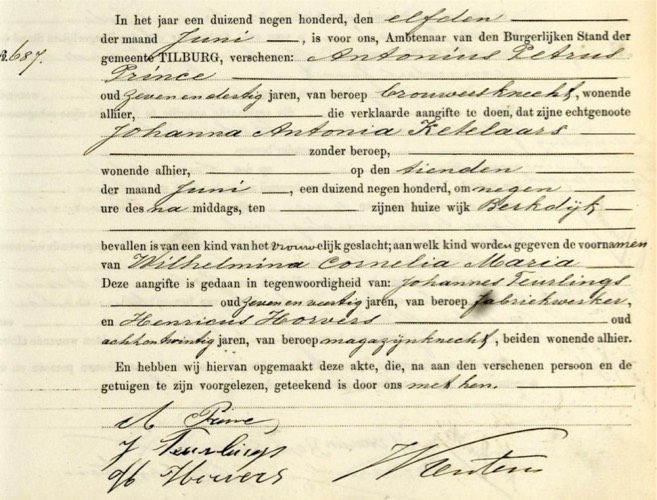 In het jaar een duizend negen honderd, den elfden
der maand Juni, is voor ons, Ambtenaar van den Burgerlijken Stand der
R. 687.
gemeente TILBURG, verschenen: Antonius Petrus
Prince
oud zevenendertig jaren, van beroep brouwersknecht, wonende
alhier, die verklaarde aangifte te doen, dat zijne echtgenoote
Johanna Antonia Ketelaars
zonder beroep,
wonende alhier, op den tienden
der maand Juni, een duizend negen honderd, om negen
ure des na middags, ten zijnen huize wijk Berkdijk
bevallen is van een kind van het vrouwelijk geslacht; aan welk kind worden gegeven de voornamen
van Wilhelmina Cornelia Maria
Deze aangifte is gedaan in tegenwoordigheid van: Johannes Teurlings
oud zeven en veertig jaren, van beroep fabriekwerker,
en Henricus Horvers oud
achtentwintig jaren, van beroep magazijnknecht, beiden wonende alhier.
En hebben wij hiervan opgemaakt deze akte, die, na aan den verschenen persoon en de
getuigen te zijn voorgelezen, geteekend is door ons met hen.
A Prince
J Teurlings
H Horvers